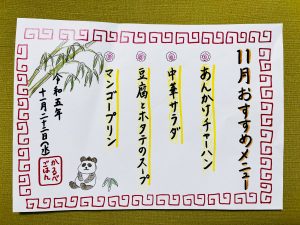 11月おすすめメニュー
あんかけチャーハン
中華サラダ
豆腐とホタテのスープ
マンゴープリン
令和五年
十一月二十二日(水)
かるべ
ごはん